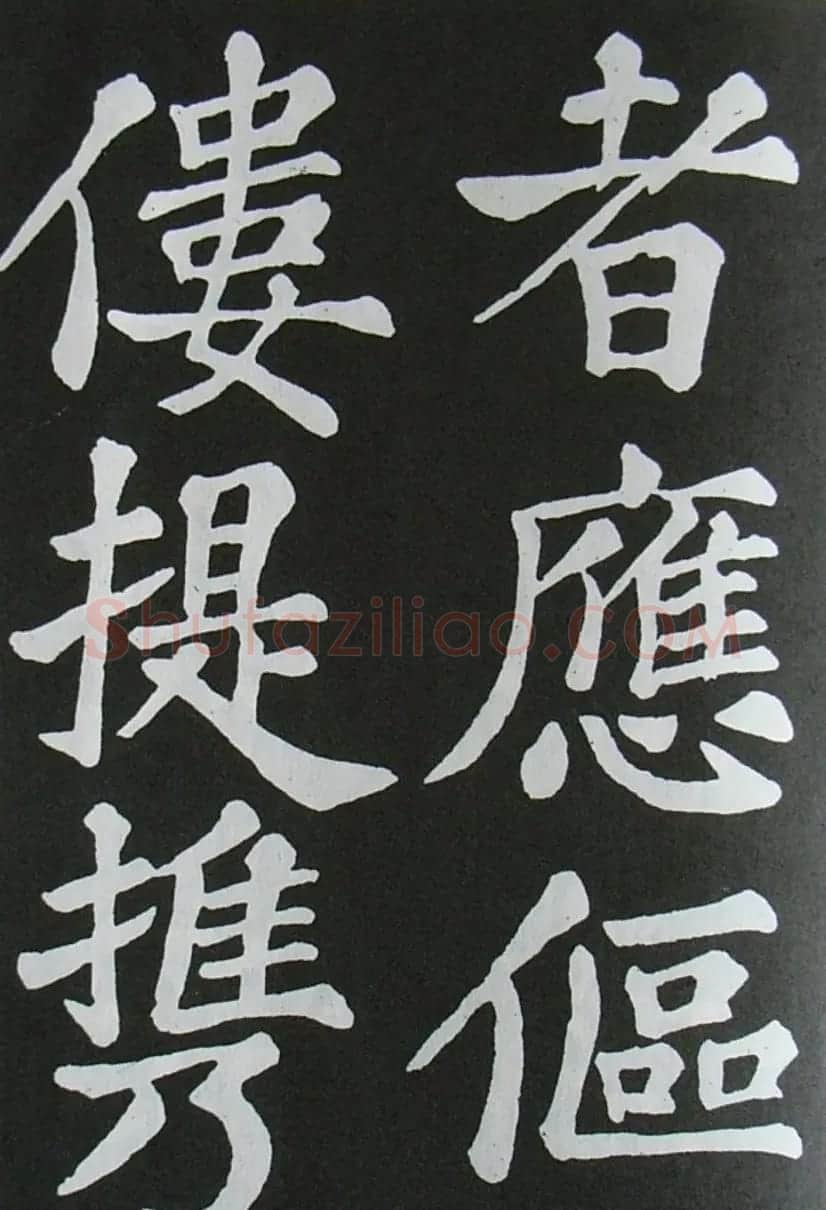 者應傴
僂提攜
Shufaziliao.COM